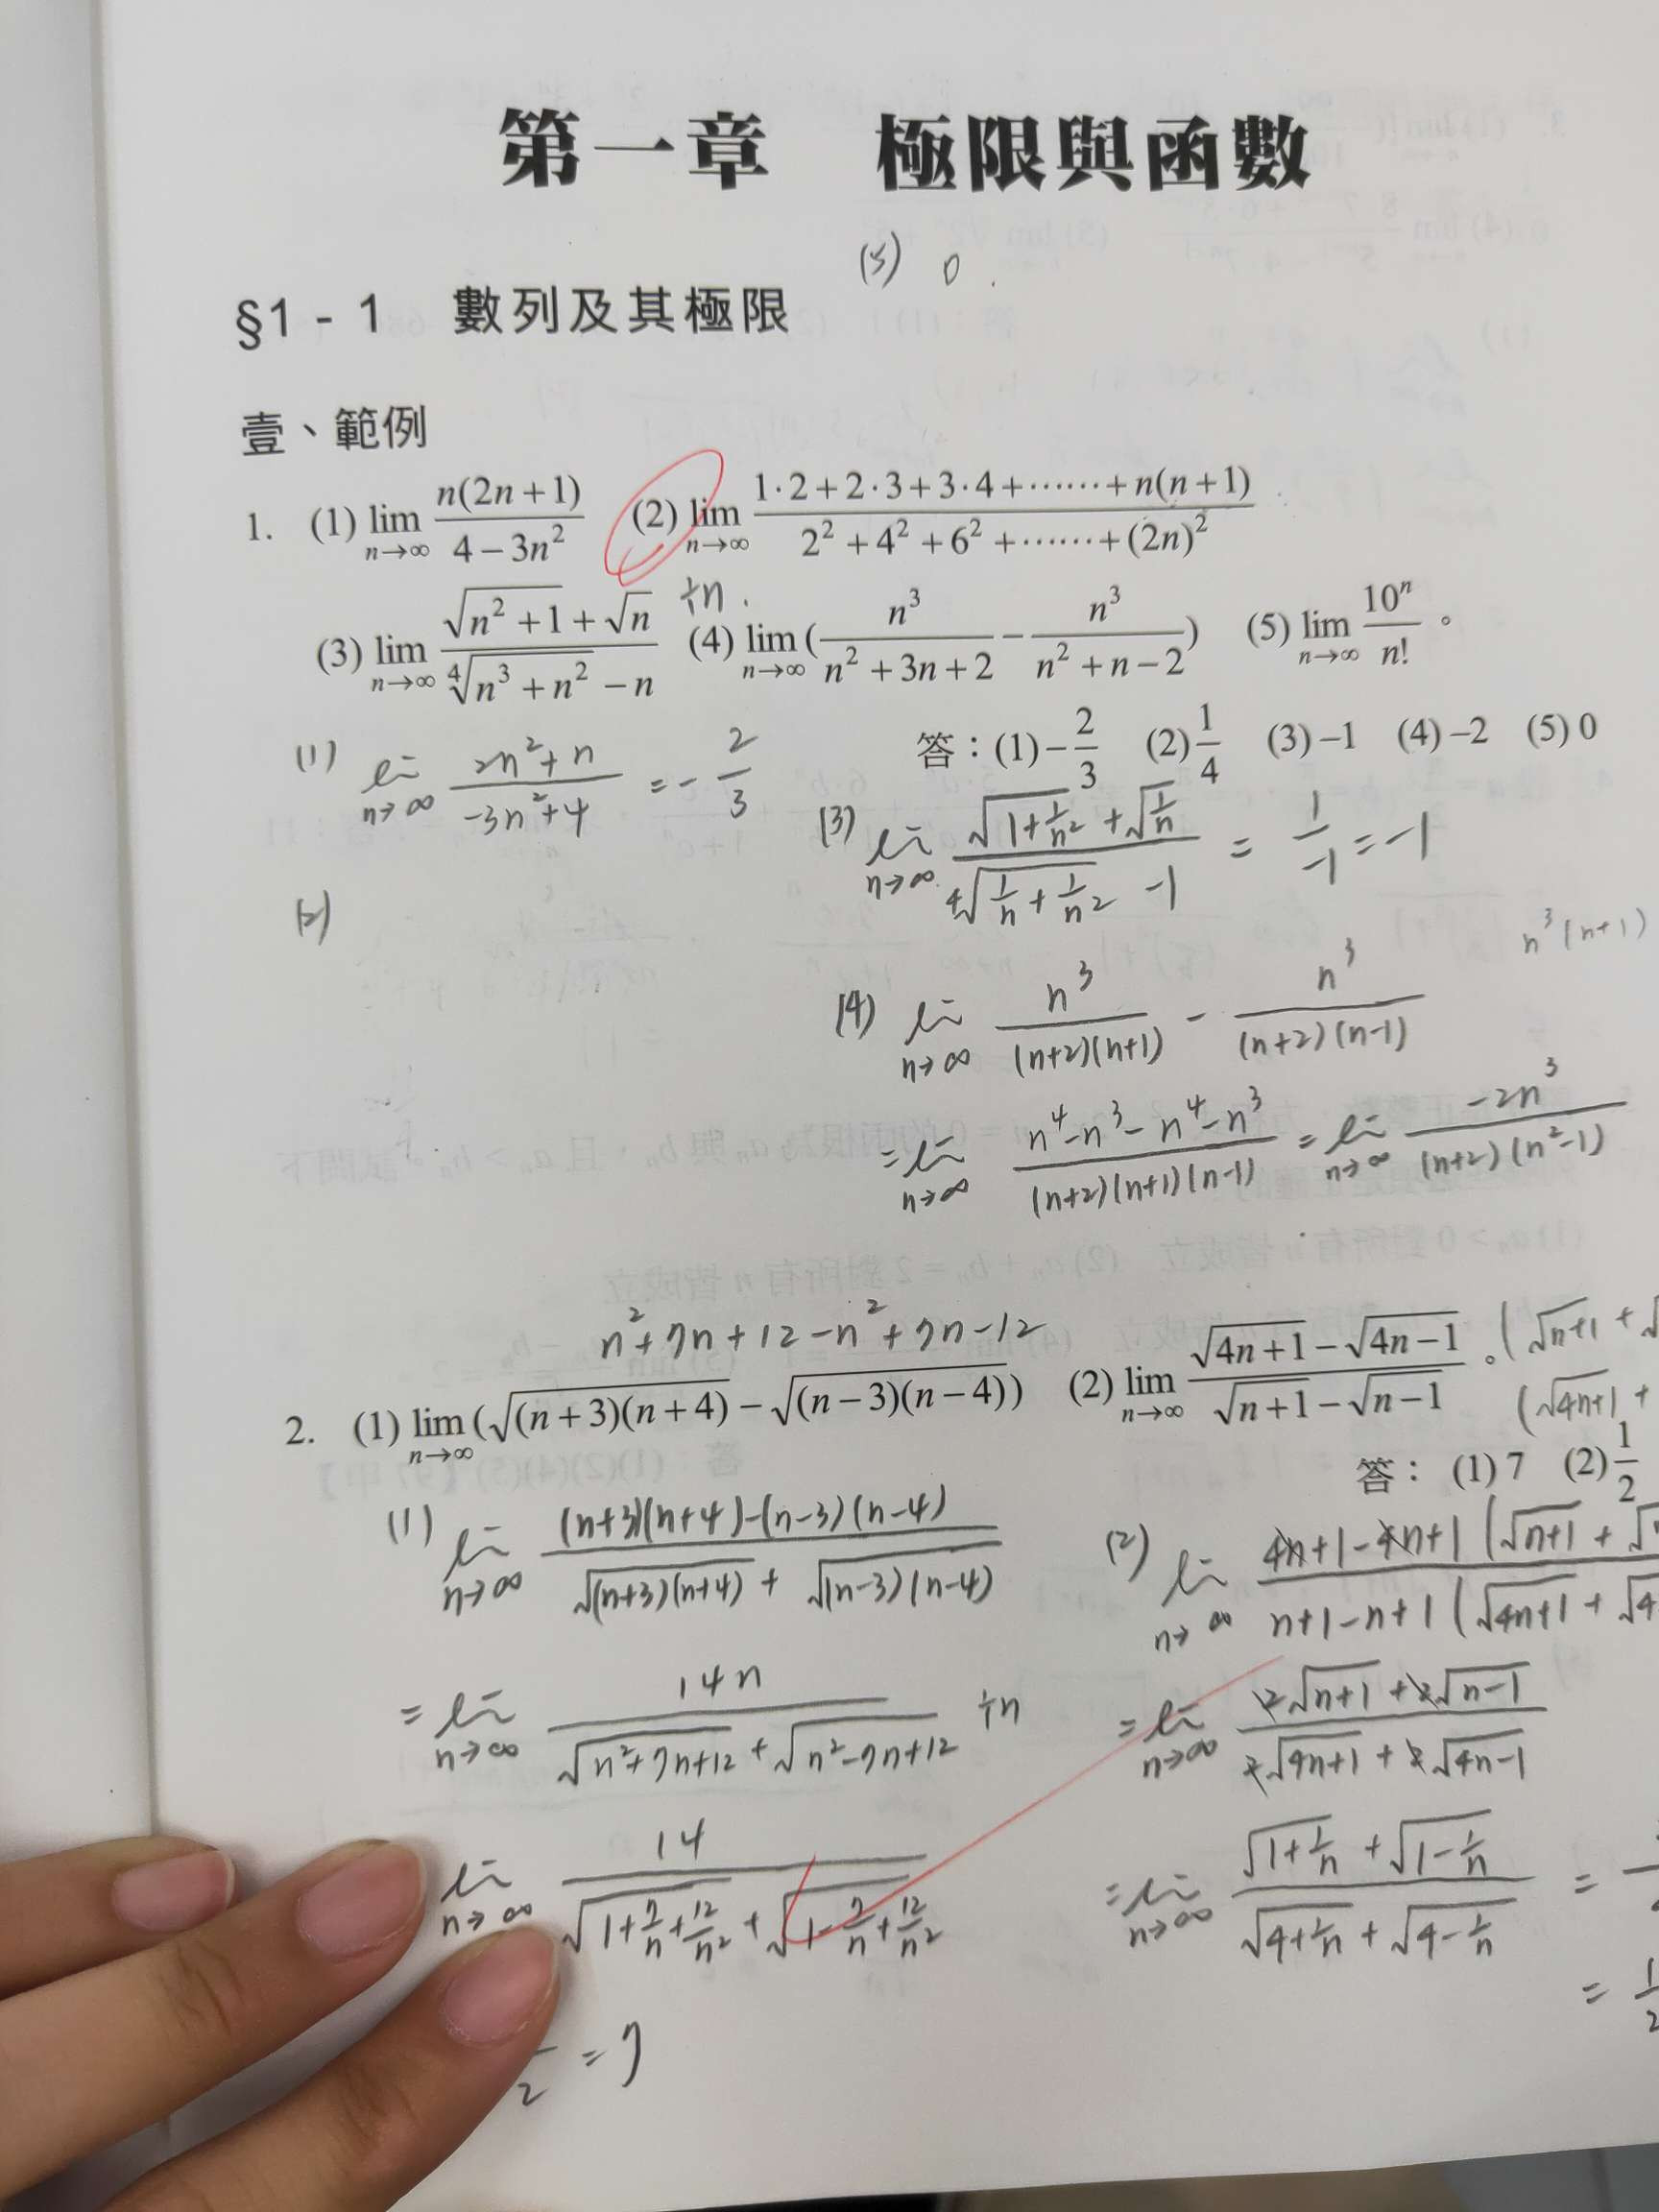 第一章 極限與函數
(5) 0.
§1-1 數列及其極限
壹、範例
1. (1) lim n→∞ n(2n+1)/(4-3n²) (2) lim n→∞ (1·2+2·3+3·4+……+n(n+1))/(2²+4²+6²+……+(2n)²)
÷n.
(3) lim n→∞ (√(n²+1)+√n)/(⁴√(n³+n²)-n) (4) lim n→∞ (n³/(n²+3n+2) - n³/(n²+n-2)) (5) lim n→∞ 10ⁿ/n! 。
答：(1) -2/3 (2) 1/4 (3) -1 (4) -2 (5) 0
(1) lim n→∞ (2n²+n)/(-3n²+4) = -2/3
(3) lim n→∞ (√(1+1/n²)+√(1/n))/(⁴√(1/n+1/n²)-1) = 1/-1 = -1
(2)
n³(n+1)
(4) lim n→∞ n³/((n+2)(n+1)) - n³/((n+2)(n-1))
= lim n→∞ (n⁴-n³-n⁴-n³)/((n+2)(n+1)(n-1)) = lim n→∞ -2n³/((n+2)(n²-1))
n²+7n+12-n²+7n-12
2. (1) lim n→∞ (√((n+3)(n+4)) - √((n-3)(n-4))) (2) lim n→∞ (√(4n+1)-√(4n-1))/(√(n+1)-√(n-1)) 。
(√n+1 +
(√4n+1 +
答： (1) 7 (2) 1/2
(1) lim n→∞ ((n+3)(n+4)-(n-3)(n-4))/(√((n+3)(n+4)) + √((n-3)(n-4)))
(2) lim n→∞ 4n+1-4n+1 (√n+1 + / n+1-n+1 (√4n+1 + √4
= lim n→∞ 14n/(√(n²+7n+12)+√(n²-7n+12)) ÷n
= lim n→∞ (2√(n+1)+2√(n-1))/(2√(4n+1)+2√(4n-1))
lim n→∞ 14/(√(1+7/n+12/n²)+√(1-7/n+12/n²))
= lim n→∞ (√(1+1/n)+√(1-1/n))/(√(4+1/n)+√(4-1/n)) =
= 1/2
2 = 7